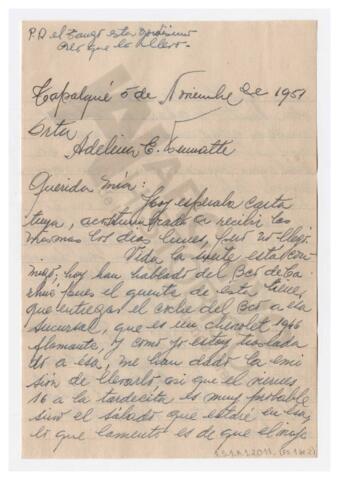 P.D el Tango esta
veo que lo
Tapalqué 5 de Noviembre de 1951
Srta
Adelina E.
Querida mía:
Hoy esperaba carta
tuya, acostumbrado a recibir las
mismas los días lunes, pero no llegó.
Vida la suerte está con-
migo; hoy han hablado del Bco de
pues el gerente de esta tiene
que entregar el coche del Bco a esa
sucursal, que es un chevrolet 1946
flamante, y como yo estoy traslada
do a esa, me han dado la
sión de llevarlo, así que el viernes
16 a la tardecita es muy probable
sino el sábado que estaré en esa,
lo que lamento es de que el viaje